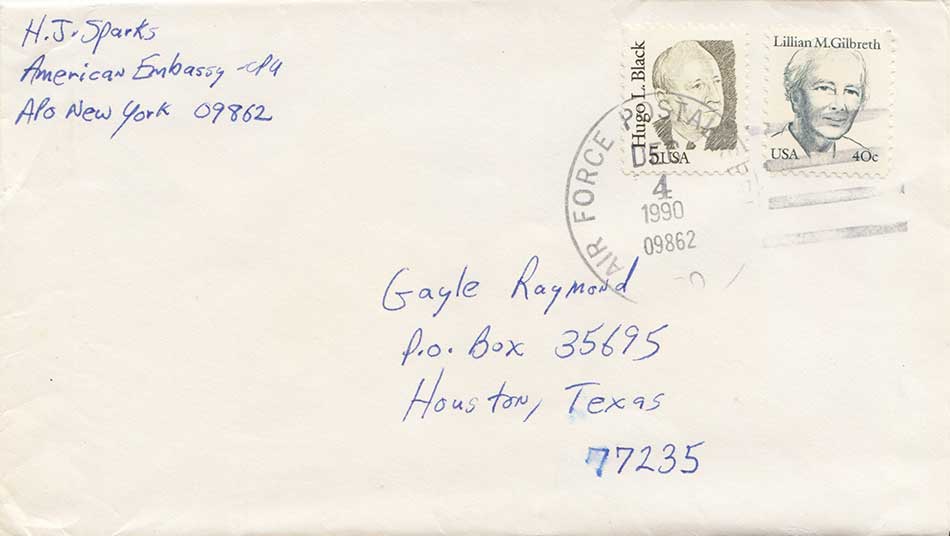 H.J. Sparks
American Embassy -CPU
APO New York 09862
Hugo L. Black
5 USA
Lillian M. Gilbreth
USA 40c
AIR FORCE POSTAL
DEC
4
1990
09862
Gayle Raymond
P.O. Box 35695
Houston, Texas
77235